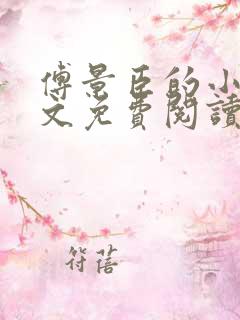 傅景臣的小
文免費閱讀
符蓓